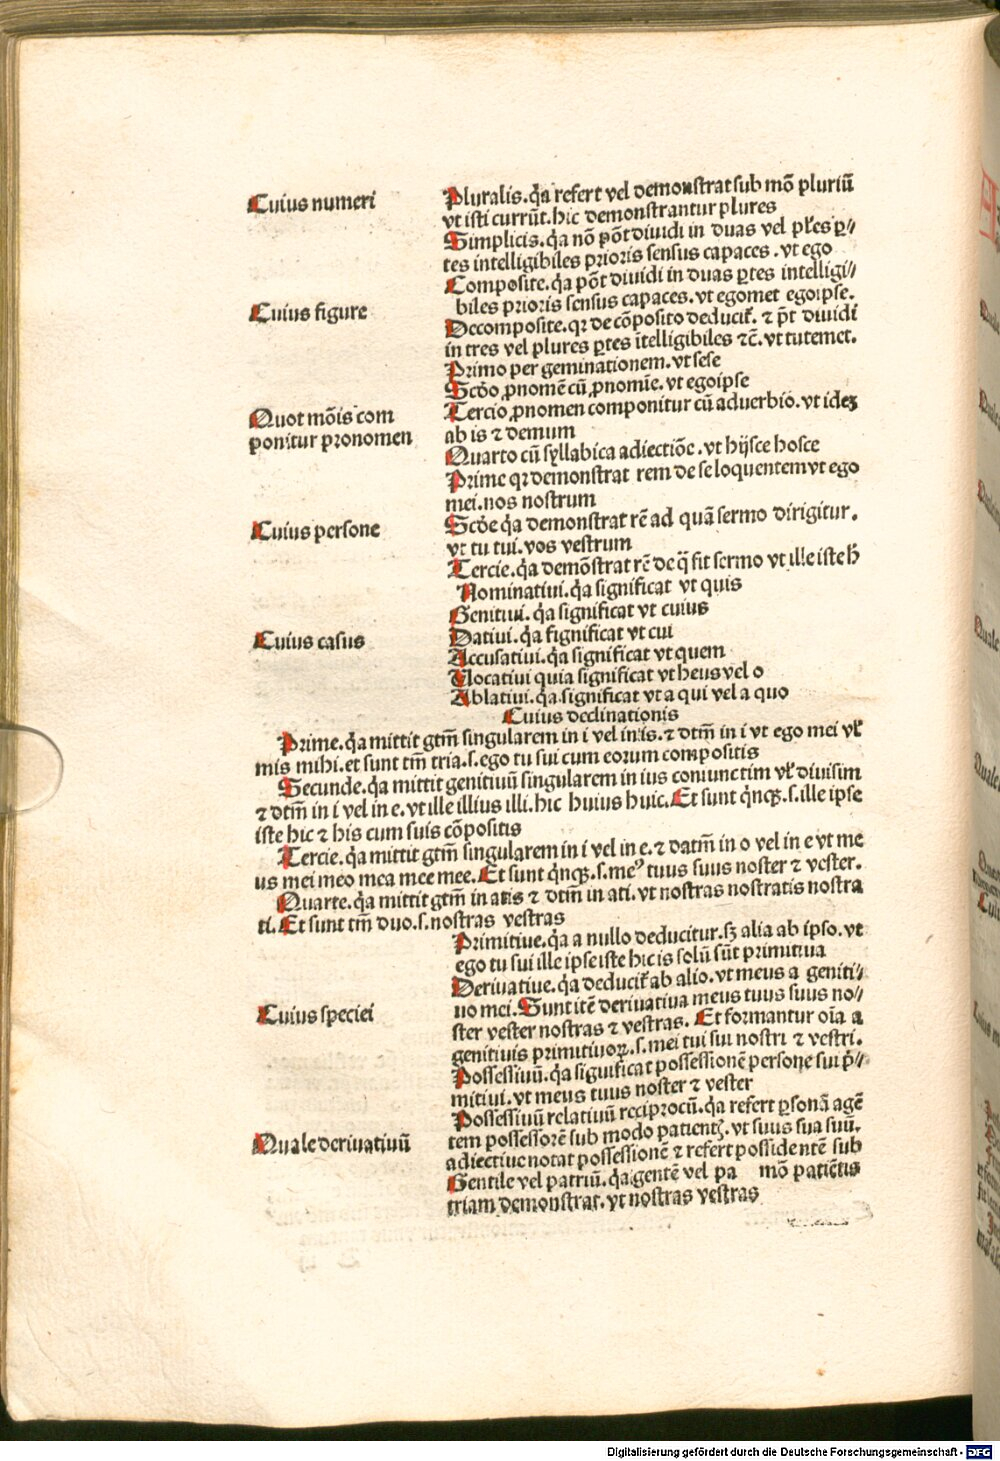 Cuius numeri
Pluralis. q̃a refert vel demonstrat sub mõ pluriũ
vt isti currũt. hic demonstrantur plures
Simplicis. q̃a nõ põt diuidi in duas vel pl̃es ꝑ//
tes intelligibiles prioris sensus capaces. vt ego
Composite. q̃a põt diuidi in duas ꝑtes intelligi//
biles prioris sensus capaces. vt egomet egoipse.
Cuius figure
Decomposite. qꝛ de cõposito deducit̃. ⁊ p̃t diuidi
in tres vel plures ꝑtes ĩtelligibiles ⁊c̃. vt tutemet.
Primo per geminationem. vt sese
Scďo ꝓnomẽ cũ ꝓnomĩe. vt egoipse
Quot mõis com
ponitur pronomen
Tercio ꝓnomen componitur cũ aduerbio. vt idez
ab is ⁊ demum
Quarto cũ syllabica adiectiõe. vt hijsce hosce
Prime qꝛ demonstrat rem de se loquentem vt ego
mei. nos nostrum
Cuius persone
Scďe q̃a demonstrat rẽ ad quã sermo dirigitur.
vt tu tui. vos vestrum
Tercie. q̃a demõstrat rẽ de q̃ fit sermo vt ille iste h̃
Nominatiui. q̃a significat vt quis
Genitiui. q̃a significat vt cuius
Cuius casus
Datiui. q̃a significat vt cui
Accusatiui. q̃a significat vt quem
Vocatiui quia significat vt heus vel o
Ablatiui. q̃a significat vt a qui vel a quo
Cuius declinationis
Prime. q̃a mittit gtm̃ singularem in i vel in is. ⁊ dtm̃ in i vt ego mei vl̃
mis mihi. et sunt tm̃ tria. s. ego tu sui cum eorum compositis
Secunde. q̃a mittit genitiuũ singularem in ius coniunctim vl̃ diuisim
⁊ dtm̃ in i vel in e. vt ille illius illi. hic huius huic. Et sunt q̃nqꝫ. s. ille ipse
iste hic ⁊ his cum suis cõpositis
Tercie. q̃a mittit gtm̃ singularem in i vel in e. ⁊ datm̃ in o vel in e vt me
us mei meo mea mee mee. Et sunt q̃nqꝫ. s. meꝰ tuus suus noster ⁊ vester.
Quarte. q̃a mittit gtm̃ in atis ⁊ dtm̃ in ati. vt nostras nostratis nostra
ti. Et sunt tm̃ duo. s. nostras vestras
Primitiue. q̃a a nullo deducitur. sꝫ alia ab ipso. vt
ego tu sui ille ipse iste hic is solũ sũt primitiua
Deriuatiue. q̃a deducit̃ ab alio. vt meus a geniti//
Cuius speciei
uo mei. Sunt itẽ deriuatiua meus tuus suus no//
ster vester nostras ⁊ vestras. Et formantur oĩa a
genitiuis primitiuoꝝ. s. mei tui sui nostri ⁊ vestri.
Possessiuũ. q̃a significat possessionẽ persone sui p̃//
mitiui. vt meus tuus noster ⁊ vester
Possessiuũ relatiuũ reciprocũ. q̃a refert ꝑsonã agẽ
Quale deriuatiuũ
tem possessorẽ sub modo patientꝭ. vt suus sua suũ.
adiectiue notat possessionẽ ⁊ refert possidentẽ sub
Gentile vel patriũ. q̃a gentẽ vel pa mõ patiẽtis
triam demonstrat. vt nostras vestras
Digitalisierung gefördert durch die Deutsche Forschungsgemeinschaft - DFG